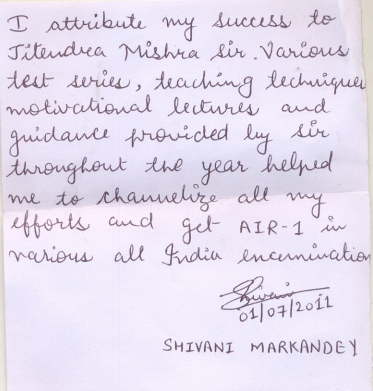 I attribute my success to
Jitendra Mishra Sir. Various
test series, teaching techniques
motivational lectures and
guidance provided by Sir
throughout the year helped
me to channelize all my
efforts and get AIR-1 in
various all India encumination
Shivani
01/07/2011
SHIVANI MARKANDEY